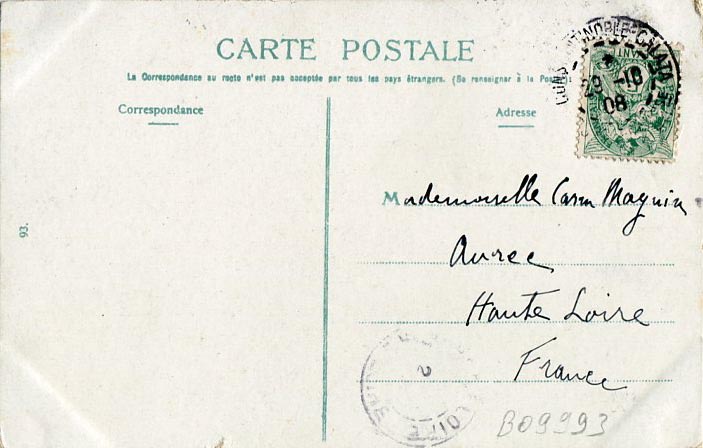 CARTE POSTALE
La Correspondance au recto n'est pas acceptée par tous les pays étrangers. (Se renseigner à la Poste)
Correspondance
Adresse
29 10
08
Mademoiselle Magnin
Aurec
Haute Loire
France
93.
2
LOIRE
B09993